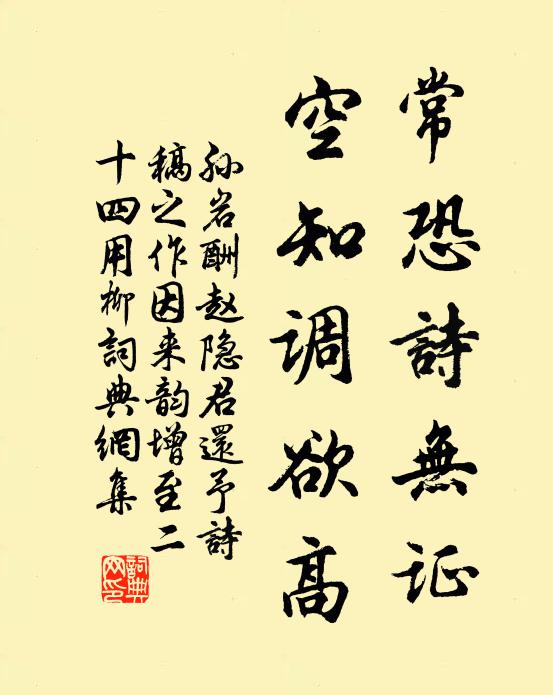 常恐詩無证
空知调欲高
孙岩酬赵隐君還予詩
稿之作因来韵增至二
十四用柳詞典網集
詞典网印